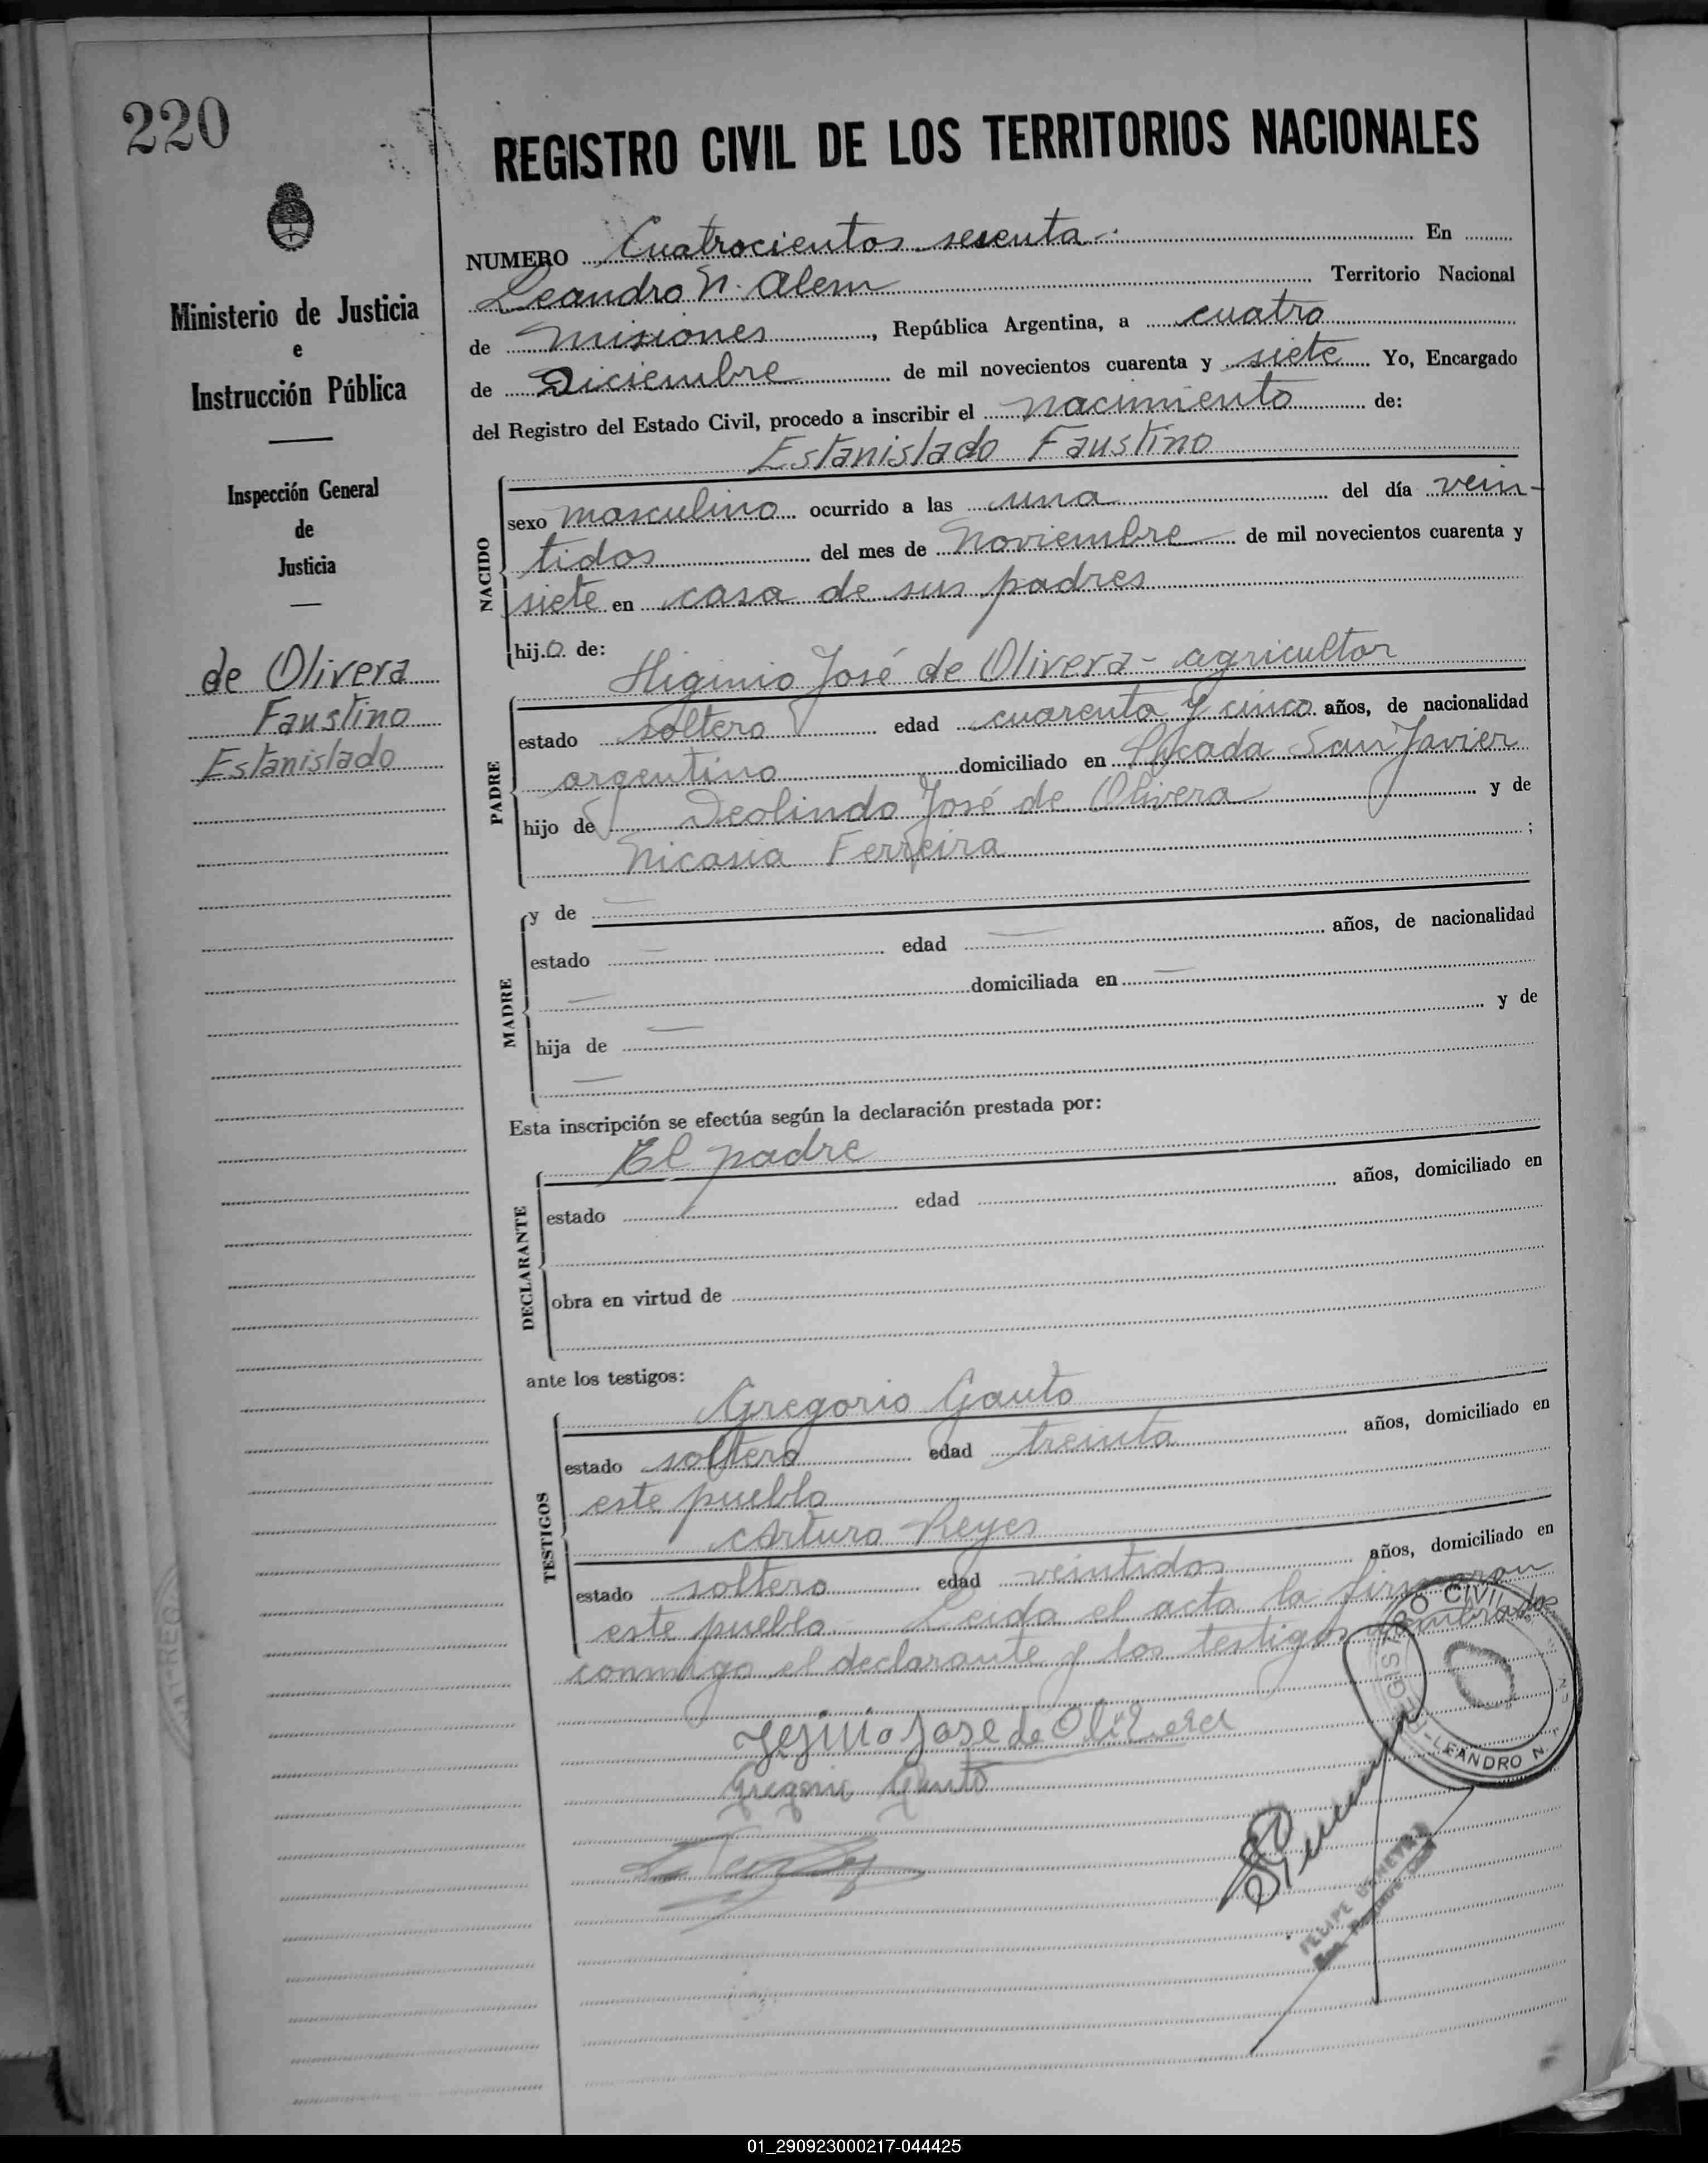 220
REGISTRO CIVIL DE LOS TERRITORIOS NACIONALES
Ministerio de Justicia
e
Instrucción Pública
Inspección General
de
Justicia
de Olivera
Faustino
Estanislado
NUMERO Cuatrocientos sesenta En
Leandro N. Alem Territorio Nacional
de Misiones, República Argentina, a cuatro
de Diciembre de mil novecientos cuarenta y siete Yo, Encargado
del Registro del Estado Civil, procedo a inscribir el nacimiento de:
Estanislado Faustino
NACIDO
sexo masculino ocurrido a las una del día vein-
tidos del mes de Noviembre de mil novecientos cuarenta y
siete en casa de sus padres
hijo de:
Higinio José de Olivera - agricultor
PADRE
estado soltero edad cuarenta y cinco años, de nacionalidad
argentino domiciliado en Picada San Javier
hijo de Deolindo José de Olivera y de
Nicasia Ferreira ;
MADRE
y de —
estado — edad — años, de nacionalidad
— domiciliada en —
hija de — y de
—
Esta inscripción se efectúa según la declaración prestada por:
El padre
DECLARANTE
estado edad años, domiciliado en
obra en virtud de
ante los testigos:
Gregorio Gauto
TESTIGOS
estado soltero edad treinta años, domiciliado en
este pueblo
Arturo Reyes
estado soltero edad veintidos años, domiciliado en
este pueblo Leida el acta la firmaron
conmigo el declarante y los testigos nombrados
Jginio Jose de Olivera
Gregorio Gauto
REGISTRO CIVIL
LEANDRO N.
FELIPE
01_290923000217-044425